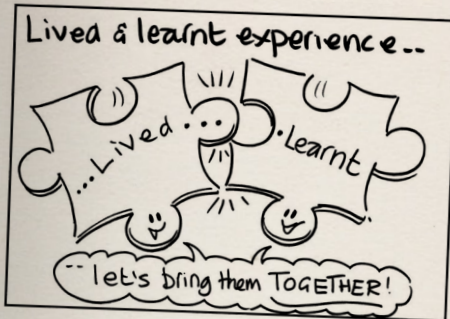 Lived & learnt experience...
...Lived...
.Learnt
-- let's bring them TOGETHER!